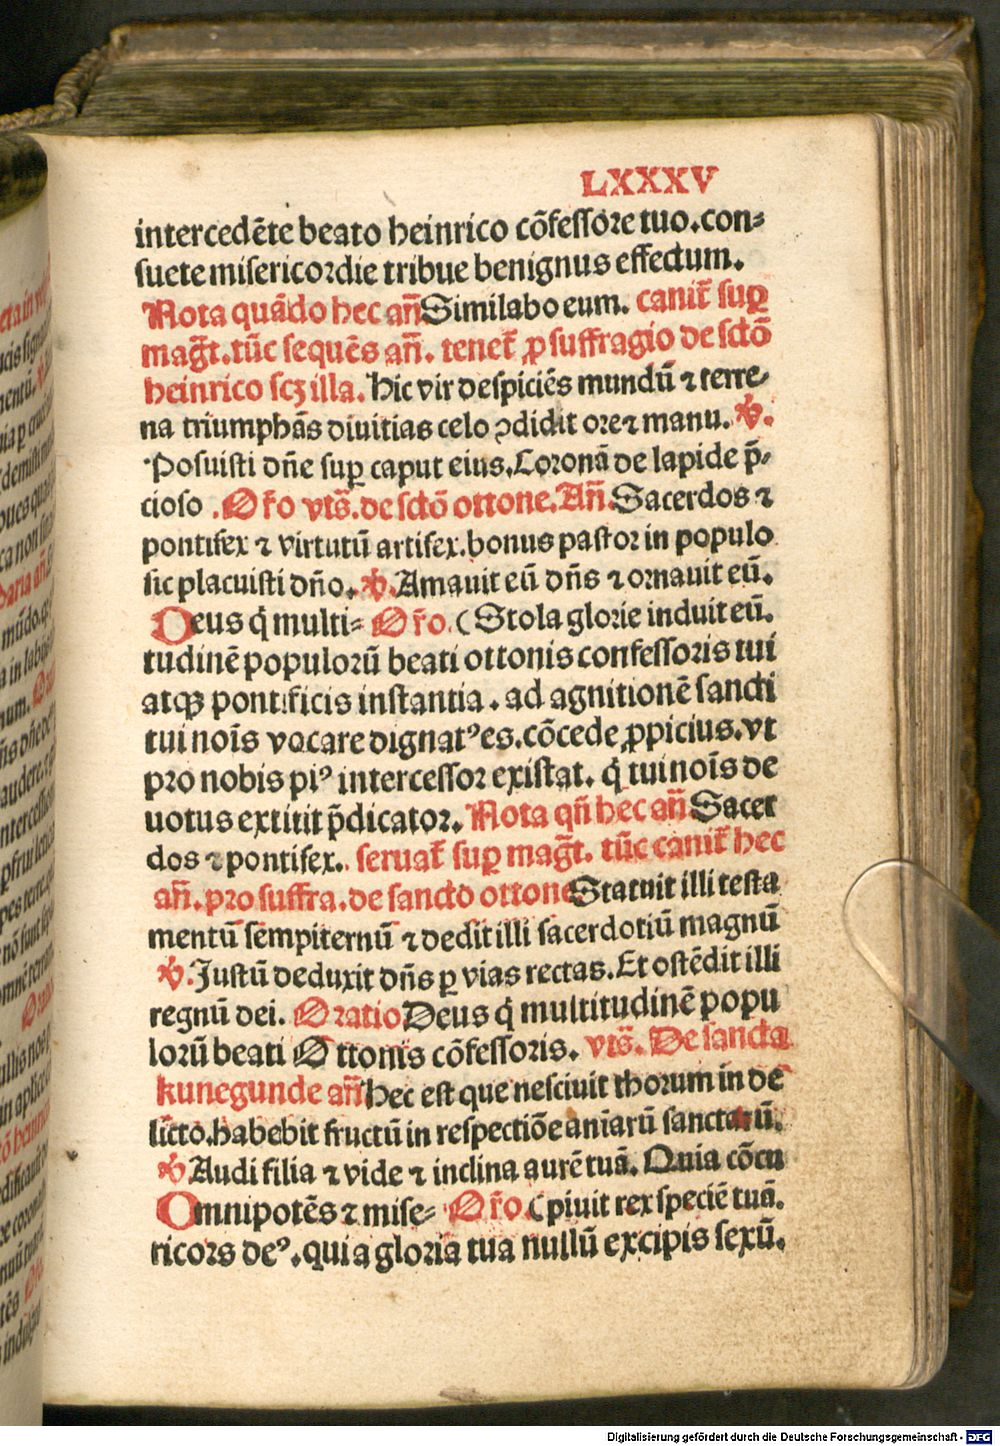 LXXXV
intercedēte beato heinrico cōfessore tuo.con⸗
suete misericordie tribue benignus effectum.
Nota quādo hec añ Similabo eum. canit̄ sup̲
mag̃t. tūc sequēs añ. tenet̄ ꝓ suffragio de sctō
heinrico scꝫ illa. Hic vir despiciēs mundū ⁊ terre⸗
na triumphās diuitias celo ꝯdidit ore ⁊ manu. ℣.
Posuisti dñe sup̲ caput eius. Coronā de lapide p̄⸗
cioso . Or̄o vts̄. de sctō ottone. Añ. Sacerdos ⁊
pontifex ⁊ virtutū artifex. bonus pastor in populo
sic placuisti dño. ℣. Amauit eū dñs ⁊ ornauit eū.
Deus q̄ multi⸗ Or̄o. ( Stola glorie induit eū.
tudinē populorū beati ottonis confessoris tui
atqꝫ pontificis instantia . ad agnitionē sancti
tui noīs vocare dignatꝰ es. cōcede ꝓpicius. vt
pro nobis piꝰ intercessor existat. q̄ tui noīs de
uotus extitit p̄dicator. Nota qñ hec añ. Sacer
dos ⁊ pontifex. seruat̄ sup̲ mag̃t. tūc canit̄ hec
añ. pro suffra. de sancto ottone Statuit illi testa
mentū sempiternū ⁊ dedit illi sacerdotiū magnū
℣. Justū deduxit dñs ꝑ vias rectas. Et ostēdit illi
regnū dei. Oratio Deus q̄ multitudinē popu
lorū beati Ottonis cōfessoris. vts̄. De sancta
kunegunde añ Hec est que nesciuit thorum in de
licto. habebit fructū in respectiōe aniarū sanctarū.
℣ Audi filia ⁊ vide ⁊ inclina aurē tuā. Quia cōcu
Omnipotēs ⁊ mise⸗ Or̄o. ( piuit rex speciē tuā.
ricors deꝰ. quia gloria tua nullū excipis sexū.
Digitalisierung gefördert durch die Deutsche Forschungsgemeinschaft - DFG